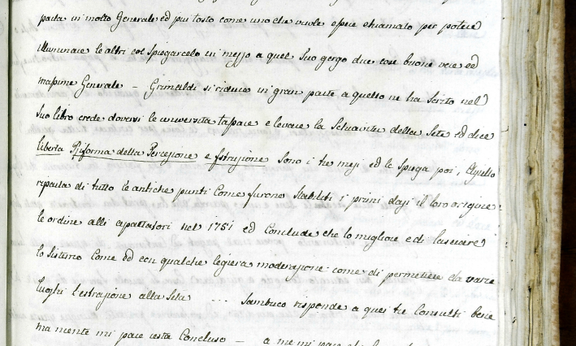 parla in molto Generale ed piu tosto come uno che vuole essere chiamato per potere
illuminare le altri col Spiegarcelo in mezzo a quel suo gergo due cose buone vere ed
massime Generale – Grimaldi si riduce in gran parte a quello ne ha scritto nel
suo libro crede doversi le università tassare e levare la Schiavitù della Seta ed dice
liberta Riforma della Percezione e Estrazione sono i tre mezi ed le Spiega poi,
riporta di tutto le antiche punti Come furono Stabiliti i primi dazi il loro origine
le ordine alli appaltatori nel 1751 ed Conclude che lo migliore e di lasciare
lo sistimo Come ed con qualche legiera moderazione come di permettere da varie
luoghi l'estrazione alla Seta ... Sambuco risponde a quei tre Consulti bene
ma mente mi pare resta Concluso – a me mi pare che